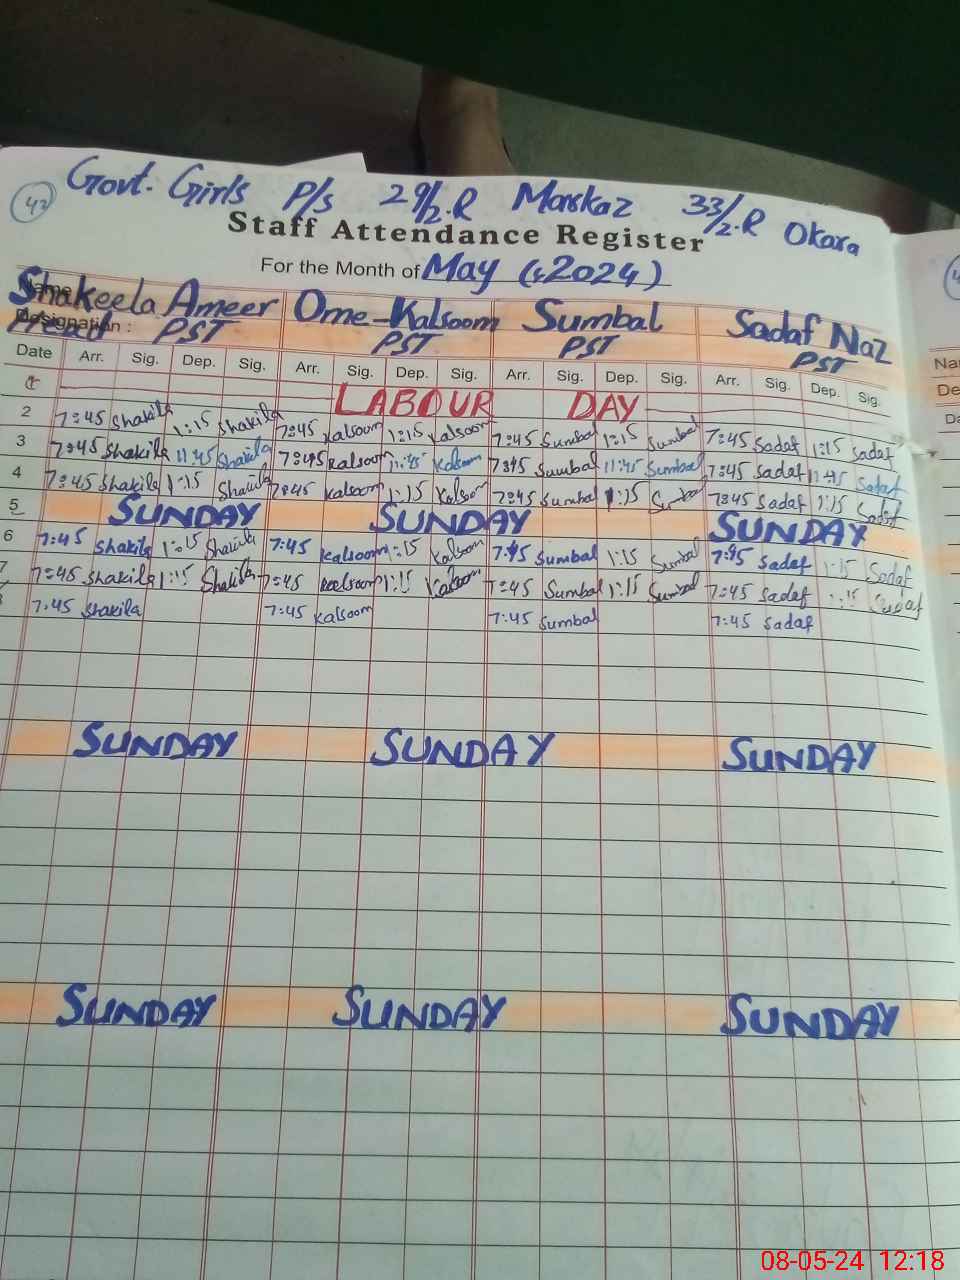 42
Govt. Girls P/s 29/2.R Markaz 33/2.R Okara
Staff Attendance Register
For the Month of May (2024)
Name Shakeela Ameer Ome-Kalsoom Sumbal Sadaf Naz
Designation : Head PST PST PST PST
Date Arr. Sig. Dep. Sig. Arr. Sig. Dep. Sig. Arr. Sig. Dep. Sig. Arr. Sig. Dep. Sig.
1 LABOUR DAY
2 7:45 Shakila 1:15 Shakila 7:45 Kalsoom 1:15 Kalsoom 7:45 Sumbal 1:15 Sumbal 7:45 Sadaf 1:15 Sadaf
3 7:45 Shakila 11:45 Shakila 7:45 Kalsoom 11:45 Kalsoom 7:45 Sumbal 11:45 Sumbal 7:45 Sadaf 11:45 Sadaf
4 7:45 Shakila 1:15 Shakila 7:45 Kalsoom 1:15 Kalsoom 7:45 Sumbal 1:15 Sumbal 7:45 Sadaf 1:15 Sadaf
5 SUNDAY SUNDAY SUNDAY
6 7:45 Shakila 1:15 Shakila 7:45 Kalsoom 1:15 Kalsoom 7:45 Sumbal 1:15 Sumbal 7:45 Sadaf 1:15 Sadaf
7 7:45 Shakila 1:15 Shakila 7:45 Kalsoom 1:15 Kalsoom 7:45 Sumbal 1:15 Sumbal 7:45 Sadaf 1:15 Sadaf
7:45 Shakila 7:45 Kalsoom 7:45 Sumbal 7:45 Sadaf
SUNDAY SUNDAY SUNDAY
SUNDAY SUNDAY SUNDAY
08-05-24 12:18